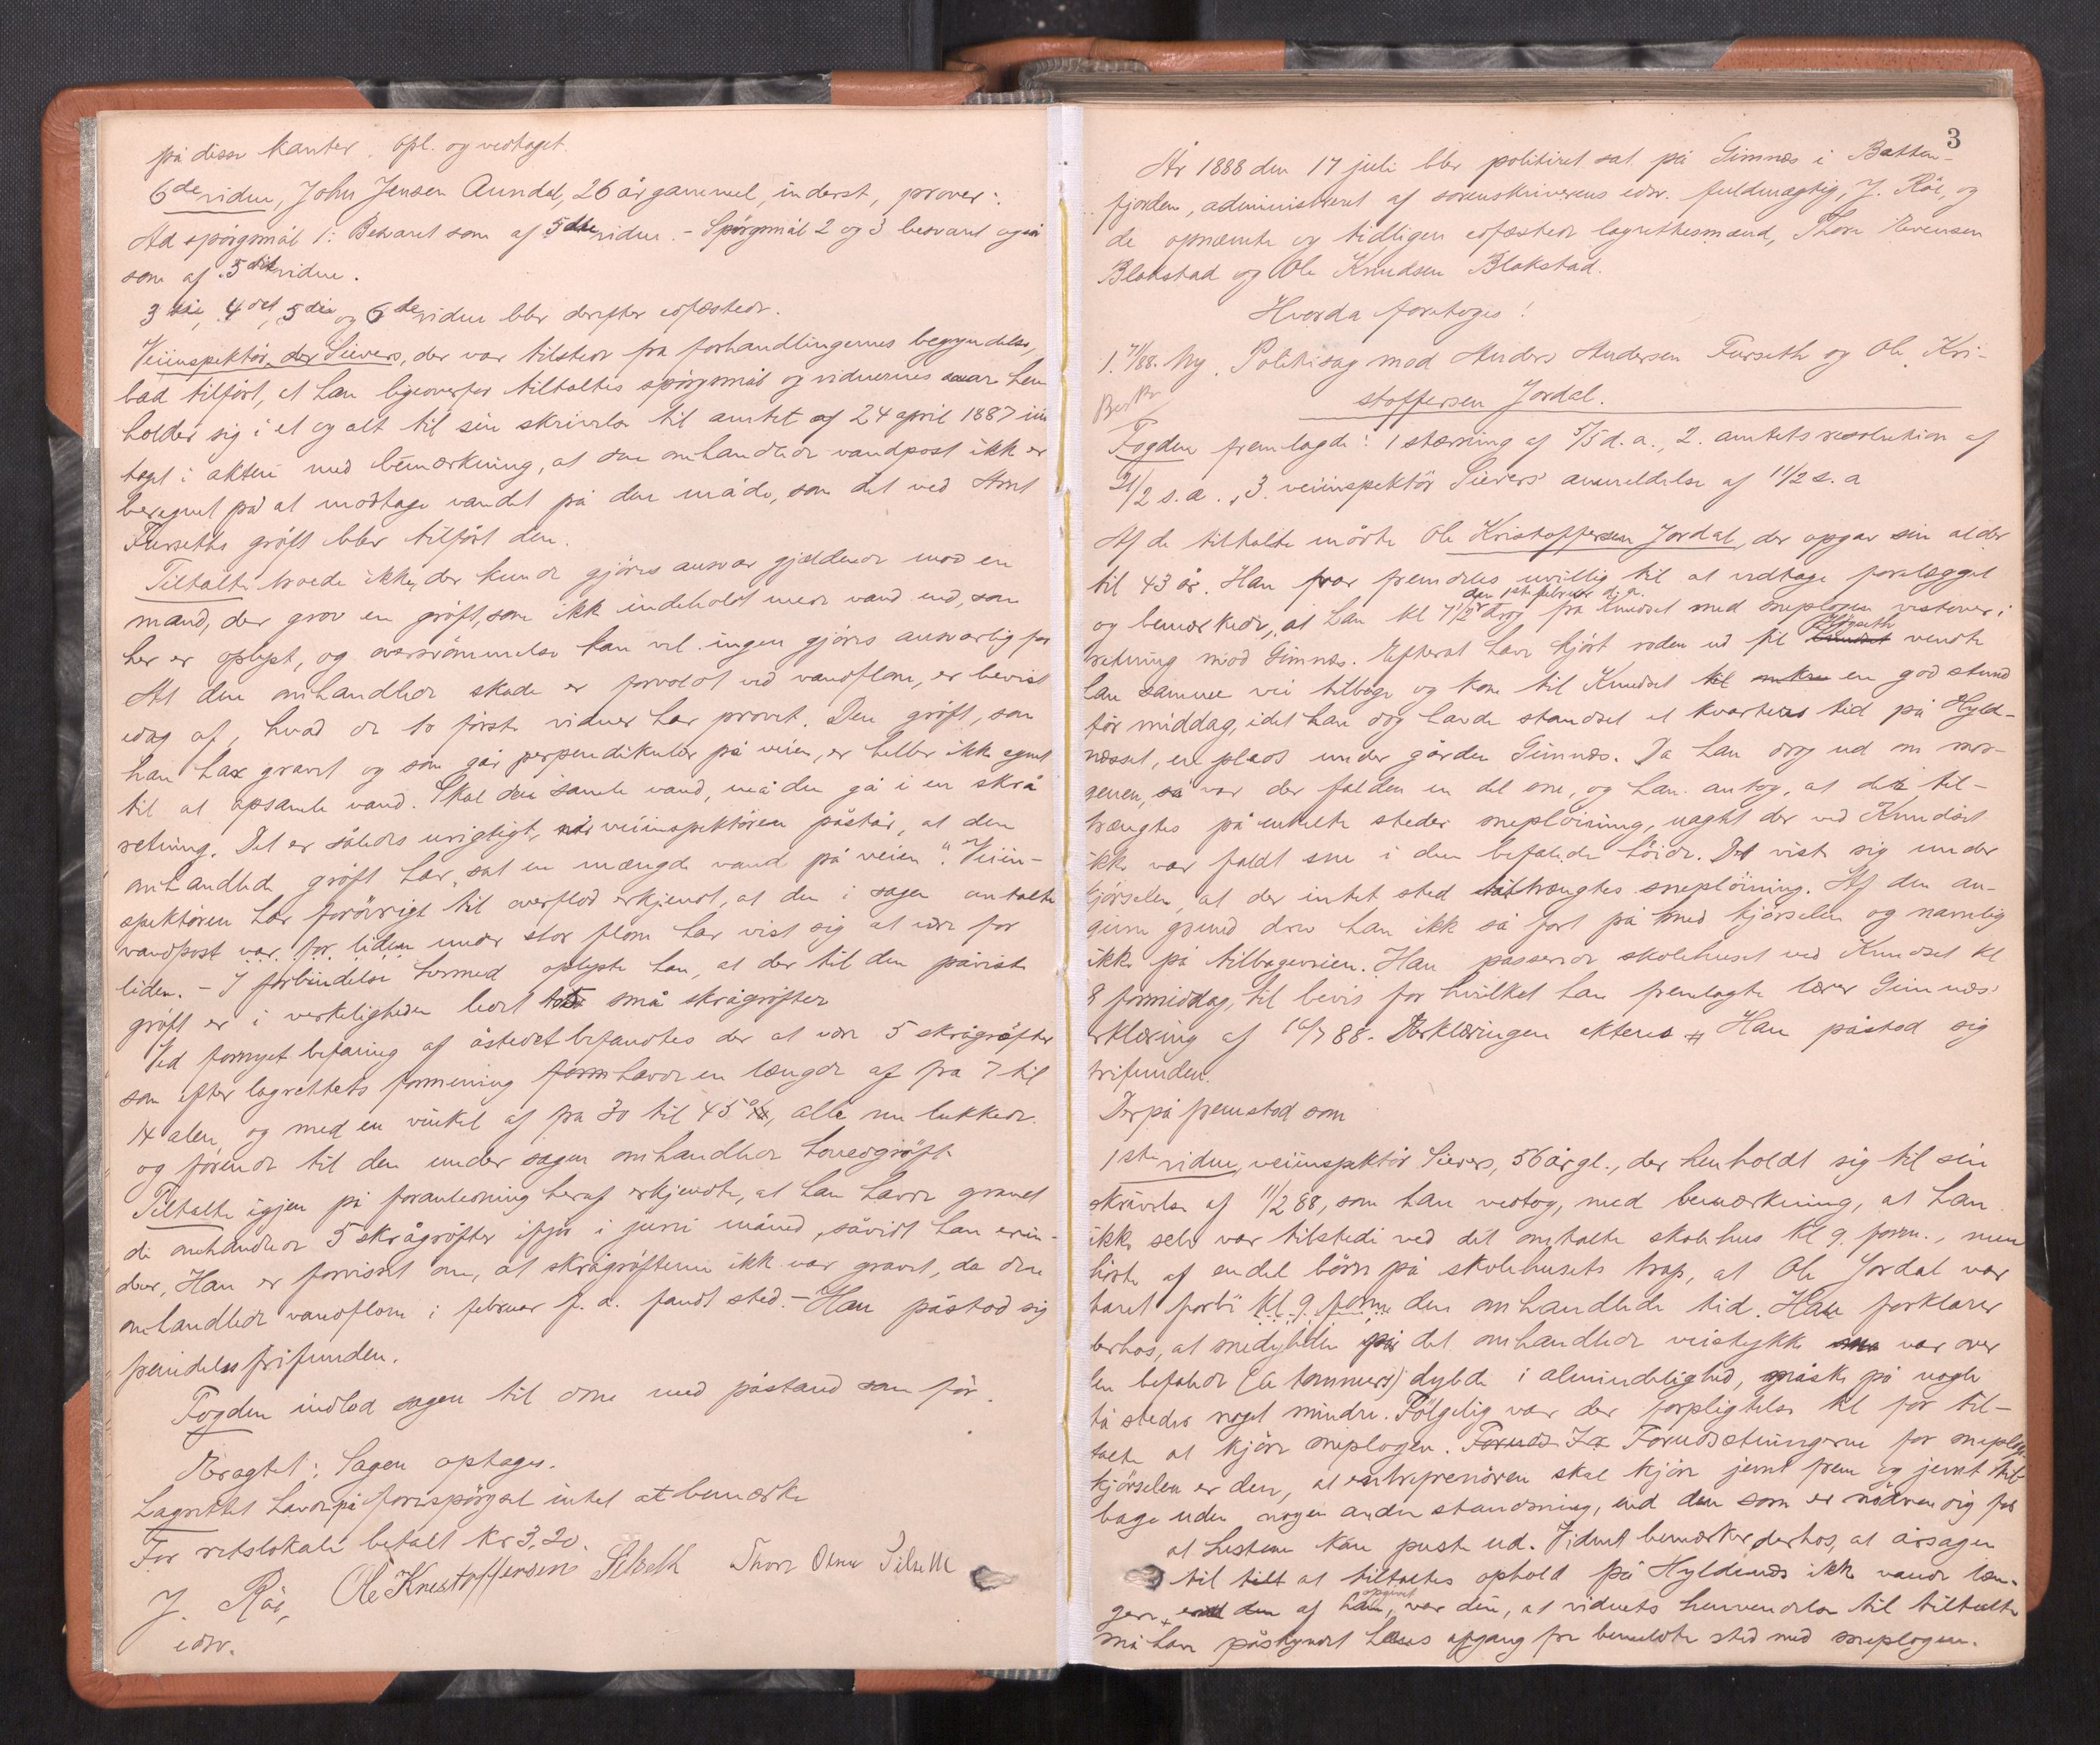 på disse kanter. Opl. og vedtaget.
6de vidne, John Jensen Aundal, 26 år gammel, inderst, prover:
Ad spörgsmål 1: Besvaret som af 5dte vidne. - Spörgsmål 2 og 3 besvaret også
som af 5dte vidne.
3die, 4det, 5die og 6de vidne blev derefter edfæstede.
Veiinspektör der Sievers, der var tilstede fra forhandlingernes begyndelse,
bad tilfört, at han ligeoverfor tiltaltes spörgsmål og vidnernes svar hen
holder sig i et og alt til sin skrivelse til amtet af 24 april 1887 ind
taget i akten med bemærkning, at den omhandlede vandpost ikke er
beregnet på at modtage vandet på den måde, som det ved Arnt
Furseths gröft blev tilfört den.
Tiltalte troede ikke, der kunde gjöres ansvar gjældende mod en
mand, der grov en gröft, som ikke indeholdt mere vand end, som
her er oplyst, og oversvömmelse kan vel ingen gjöres ansvarlig for
At den omhandlede skade er forvoldt ved vandflom, er bevist
idag af, hvad de to förste vidner har provet. Den gröft, som
han har gravet og som går perpendikulær på veien, er heller ikke egnet
til at opsamle vand. Skal den samle vand, må den gå i en skrå
retning. Det er således urigtigt, når veiinspektören påstår, at den
omhandlede gröft har "sat en mængde vand på veien". Veiin-
spektören har forövrigt til overflod erkjendt, at den i sagen omtalte
vandpost var for liden under stor flom har vist sig at være for
liden. - I forbindelse hermed oplyste han, at der til den påviste
gröft er i verkeligheden ledet små skrågröfter
Ved fornyet befaring af åstedet befandtes der at være 5 skrågröfter
som efter lagrettets formening havde en længde af fra 7 til
14 alen og med en vinkel af fra 30 til 45°, alle nu lukkede.
og förende til den under sagen omhandlede hovedgröft
Tiltalte igjen på foranledning heraf erkjendte, at han havde gravet
de omhandlede 5 skrågröfter ifjor i juni måned, såvidt han erin-
drer, Han er forvisset om, at skrågröfterne ikke var gravet, da den
omhandlede vandflom i februar f. a. fandt sted. - Han påstod sig
fremdeles frifunden.
Fogden indlod sagen til dom med påstand som för.
Eragtet: Sagen optages.
Lagrettet havde på forespörgsel intet at bemærke
For retslokale betalt kr 3,20.
J. Röe, Ole Kristoffersen Silseth Thore Olsen Silseth
edsv.
3
År 1888 den 17 juli blev politiret sat på Gimnæs i Batten-
fjorden, administreret af sorenskriverens edsv. fuldmægtig, J. Röe, og
de opnævnte og tidligere edfæstede lagrettesmænd, Thore Evensen
Blakstad og Ole Knudsen Blakstad.
Hvorda foretoges:
1. 7/88. Ny Politisag mod Anders Andersen Furseth og Ole Kri-
stoffersen Jordal.
Fogden fremlagde: 1 stævning af 5/5 d. a., 2. amtets resolution af
21/2 s. a., 3. veiinspektör Sievers' anmeldelse af 11/2 s. a
Af de tiltalte mödte Ole Kristoffersen Jordal, der opgav sin alder
til 43 år. Han var fremdeles uvillig til at vedtage forelægget
den 1ste februar d. a.
og bemærkede, at han kl 7 1/2 drog fra Knudset med sneplogen vestover i
retning mod Gimnæs. Efterat have kjört roden ud til Högseth vendte
han samme vei tilbage og kom til Knudset en god stund
för middag, idet han dog havde standset et kvarters tid på Hyld-
næsset, en plads under gården Gimnæs. Da han drog ud om mor-
genen, så var der falden en del sne, og han antog, at det til-
trængtes på enkelte steder sneplöining, uagtet der ved Knudset
ikke var faldt sne i den befalede höide. Det viste sig under
kjörselen, at der intet sted tiltrængtes sneplöining. Af den an-
givne grund drev han ikke så fort på med kjörselen og navnlig
ikke på tilbageveien. Han passerede skolehuset ved Knudset kl
8 formiddag, til bevis for hvilket han fremlagte lærer Gimnæs'
erklæring af 16/7 88. Erklæringen akteres # Han påstod sig
frifunden.
Derpå fremstod som
1ste vidne, veiinspektör Sievers, 56 år gl., der henholdt sig til sin
skrivelse af 11/2 88, som han vedtog, med bemærkning, at han
ikke selv var tilstede ved det omtalte skolehus kl 9 form., men
hörte af endel börn på skolehusets trap, at Ole Jordal var
faret forbi kl 9 form den omhandlede tid. Han forklarer
derhos, at snedybden på det omhandlede veistykke var over
den befalede (6 tommers) dybde i almindelighed, måske på nogle
få steder noget mindre. Fölgelig var der forpligtelse til for til-
talte at kjöre sneplogen. Forudsætningerne for sneplog
kjörselen er den, at entreprenören skal kjöre jevnt frem og jevnt til-
bage uden nogen anden standsning, end den som er nödvendig for
at hestene kan puste ud. Vidnet bemærker derhos, at årsagen
til at tiltaltes ophold på Hyldnæs ikke varede læn-
gere, end den af ham opgivet, var den, at vidnets henvendelse til tiltalte
må have påskyndet hans afgang fra bemeldte sted med sneplogen.